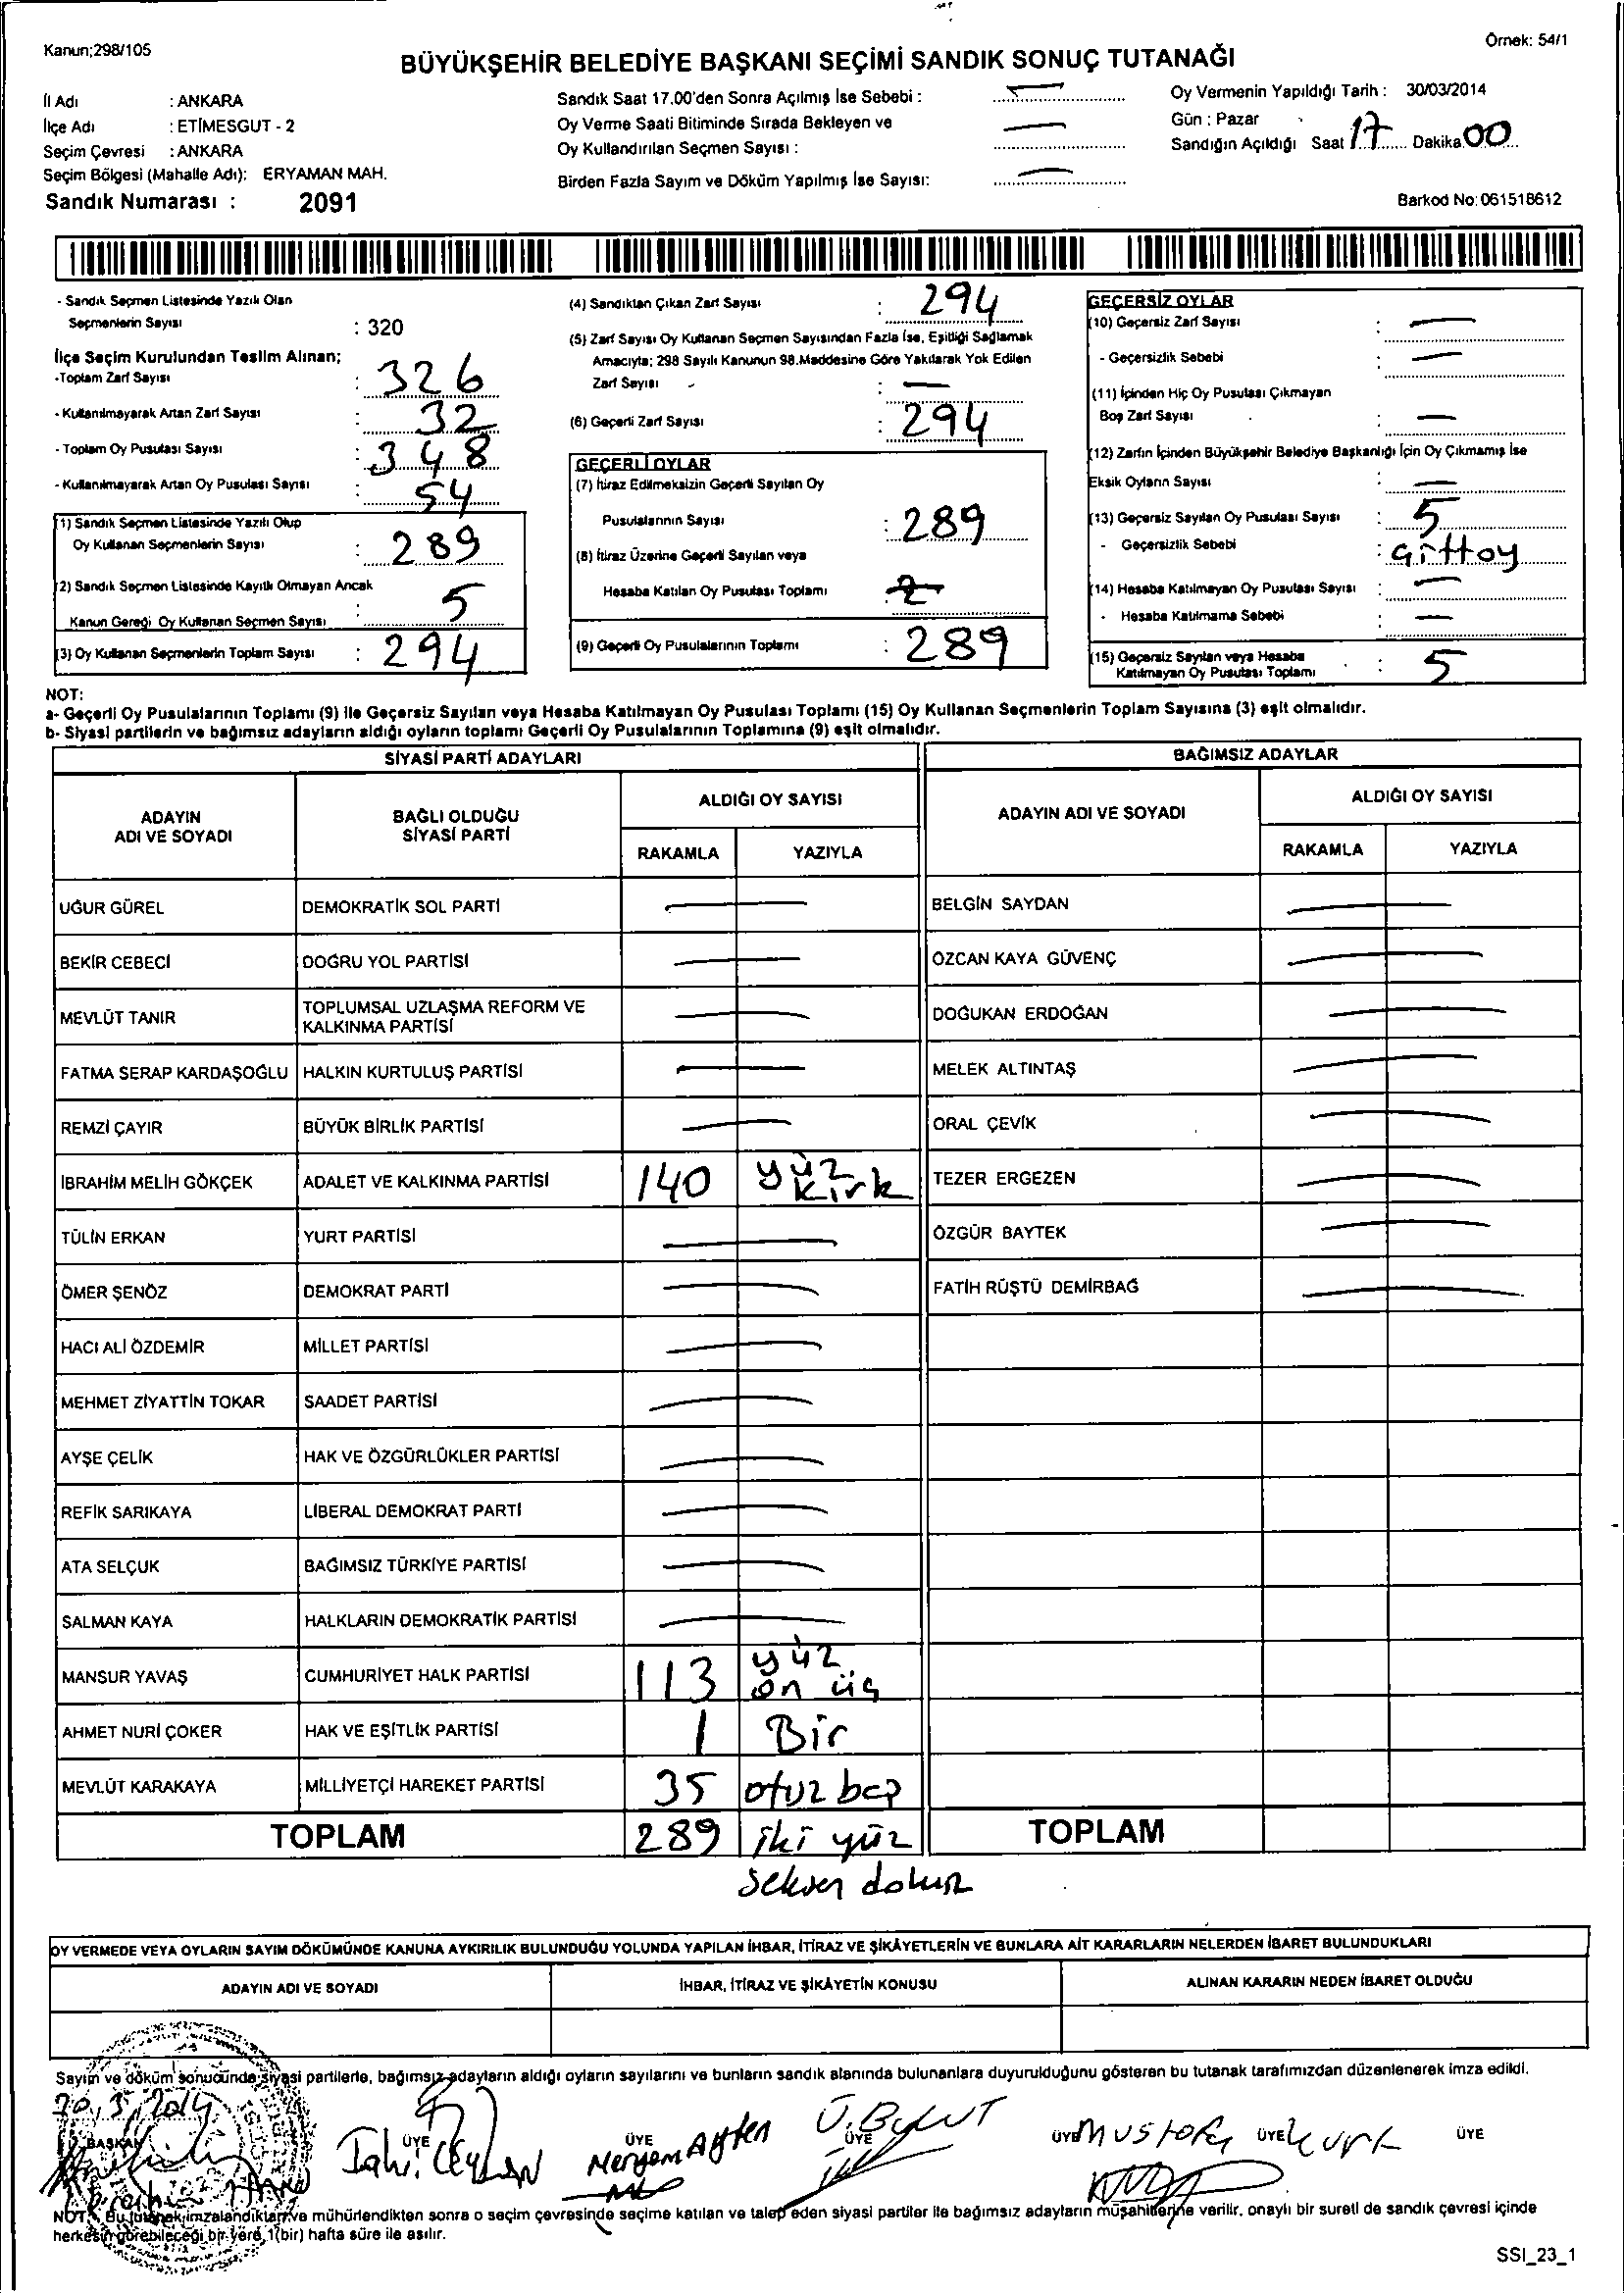 Kanun;298/105
Örnek: 54/1
BÜYÜKŞEHİR BELEDİYE BAŞKANI SEÇİMİ SANDIK SONUÇ TUTANAĞI
İl Adı : ANKARA
İlçe Adı : ETİMESGUT - 2
Seçim Çevresi : ANKARA
Seçim Bölgesi (Mahalle Adı): ERYAMAN MAH.
Sandık Numarası : 2091
Sandık Saat 17.00'den Sonra Açılmış İse Sebebi : —
Oy Verme Saati Bitiminde Sırada Bekleyen ve —
Oy Kullandırılan Seçmen Sayısı :
Birden Fazla Sayım ve Döküm Yapılmış İse Sayısı: —
Oy Vermenin Yapıldığı Tarih : 30/03/2014
Gün : Pazar
Sandığın Açıldığı Saat 17 Dakika 00
Barkod No:061518612
- Sandık Seçmen Listesinde Yazılı Olan
Seçmenlerin Sayısı : 320
İlçe Seçim Kurulundan Teslim Alınan;
-Toplam Zarf Sayısı : 326
- Kullanılmayarak Artan Zarf Sayısı : 32
- Toplam Oy Pusulası Sayısı : 348
- Kullanılmayarak Artan Oy Pusulası Sayısı : 54
(1) Sandık Seçmen Listesinde Yazılı Olup
Oy Kullanan Seçmenlerin Sayısı : 289
(2) Sandık Seçmen Listesinde Kayıtlı Olmayan Ancak
Kanun Gereği Oy Kullanan Seçmen Sayısı : 5
(3) Oy Kullanan Seçmenlerin Toplam Sayısı : 294
(4) Sandıktan Çıkan Zarf Sayısı : 294
(5) Zarf Sayısı Oy Kullanan Seçmen Sayısından Fazla İse, Eşitliği Sağlamak
Amacıyla; 298 Sayılı Kanunun 98.Maddesine Göre Yakılarak Yok Edilen
Zarf Sayısı : —
(6) Geçerli Zarf Sayısı : 294
GEÇERLİ OYLAR
(7) İtiraz Edilmeksizin Geçerli Sayılan Oy
Pusulalarının Sayısı : 289
(8) İtiraz Üzerine Geçerli Sayılan veya
Hesaba Katılan Oy Pusulası Toplamı
(9) Geçerli Oy Pusulalarının Toplamı : 289
GEÇERSİZ OYLAR
(10) Geçersiz Zarf Sayısı : —
- Geçersizlik Sebebi : —
(11) İçinden Hiç Oy Pusulası Çıkmayan
Boş Zarf Sayısı : —
(12) Zarfın İçinden Büyükşehir Belediye Başkanlığı İçin Oy Çıkmamış İse
Eksik Oyların Sayısı : —
(13) Geçersiz Sayılan Oy Pusulası Sayısı : 5
- Geçersizlik Sebebi : Çift oy
(14) Hesaba Katılmayan Oy Pusulası Sayısı : —
- Hesaba Katılmama Sebebi : —
(15) Geçersiz Sayılan veya Hesaba
Katılmayan Oy Pusulası Toplamı : 5
NOT:
a- Geçerli Oy Pusulalarının Toplamı (9) ile Geçersiz Sayılan veya Hesaba Katılmayan Oy Pusulası Toplamı (15) Oy Kullanan Seçmenlerin Toplam Sayısına (3) eşit olmalıdır.
b- Siyasi partilerin ve bağımsız adayların aldığı oyların toplamı Geçerli Oy Pusulalarının Toplamına (9) eşit olmalıdır.
SİYASİ PARTİ ADAYLARI
BAĞIMSIZ ADAYLAR
ADAYIN ADI VE SOYADI
BAĞLI OLDUĞU SİYASİ PARTİ
ALDIĞI OY SAYISI
RAKAMLA YAZIYLA
ADAYIN ADI VE SOYADI
ALDIĞI OY SAYISI
RAKAMLA YAZIYLA
UĞUR GÜREL DEMOKRATİK SOL PARTİ — BELGİN SAYDAN —
BEKİR CEBECİ DOĞRU YOL PARTİSİ — ÖZCAN KAYA GÜVENÇ —
MEVLÜT TANIR TOPLUMSAL UZLAŞMA REFORM VE KALKINMA PARTİSİ — DOĞUKAN ERDOĞAN —
FATMA SERAP KARDAŞOĞLU HALKIN KURTULUŞ PARTİSİ — MELEK ALTINTAŞ —
REMZİ ÇAYIR BÜYÜK BİRLİK PARTİSİ — ORAL ÇEVİK —
İBRAHİM MELİH GÖKÇEK ADALET VE KALKINMA PARTİSİ 140 yüz kırk TEZER ERGEZEN —
TÜLİN ERKAN YURT PARTİSİ — ÖZGÜR BAYTEK —
ÖMER ŞENÖZ DEMOKRAT PARTİ — FATİH RÜŞTÜ DEMİRBAĞ —
HACI ALİ ÖZDEMİR MİLLET PARTİSİ —
MEHMET ZİYATTİN TOKAR SAADET PARTİSİ —
AYŞE ÇELİK HAK VE ÖZGÜRLÜKLER PARTİSİ —
REFİK SARIKAYA LİBERAL DEMOKRAT PARTİ —
ATA SELÇUK BAĞIMSIZ TÜRKİYE PARTİSİ —
SALMAN KAYA HALKLARIN DEMOKRATİK PARTİSİ —
MANSUR YAVAŞ CUMHURİYET HALK PARTİSİ 113 yüz on üç
AHMET NURİ ÇOKER HAK VE EŞİTLİK PARTİSİ 1 Bir
MEVLÜT KARAKAYA MİLLİYETÇİ HAREKET PARTİSİ 35 otuz beş
TOPLAM 289 iki yüz TOPLAM
seksen dokuz
OY VERMEDE VEYA OYLARIN SAYIM DÖKÜMÜNDE KANUNA AYKIRILIK BULUNDUĞU YOLUNDA YAPILAN İHBAR, İTİRAZ VE ŞİKÂYETLERİN VE BUNLARA AİT KARARLARIN NELERDEN İBARET BULUNDUKLARI
ADAYIN ADI VE SOYADI İHBAR, İTİRAZ VE ŞİKÂYETİN KONUSU ALINAN KARARIN NEDEN İBARET OLDUĞU
Sayım ve döküm sonucunda siyasi partilerle, bağımsız adayların aldığı oyların sayılarını ve bunların sandık alanında bulunanlara duyurulduğunu gösteren bu tutanak tarafımızdan düzenlenerek imza edildi.
30,3,2014
BAŞKAN ÜYE ÜYE ÜYE ÜYE ÜYE ÜYE
Meryem Ayten Ü.Bulut Mustafa
NOT: Bu tutanak imzalandıktan ve mühürlendikten sonra o seçim çevresinde seçime katılan ve talep eden siyasi partiler ile bağımsız adayların müşahitlerine verilir, onaylı bir sureti de sandık çevresi içinde
herkesin görebileceği bir yere 1(bir) hafta süre ile asılır.
SSI_23_1